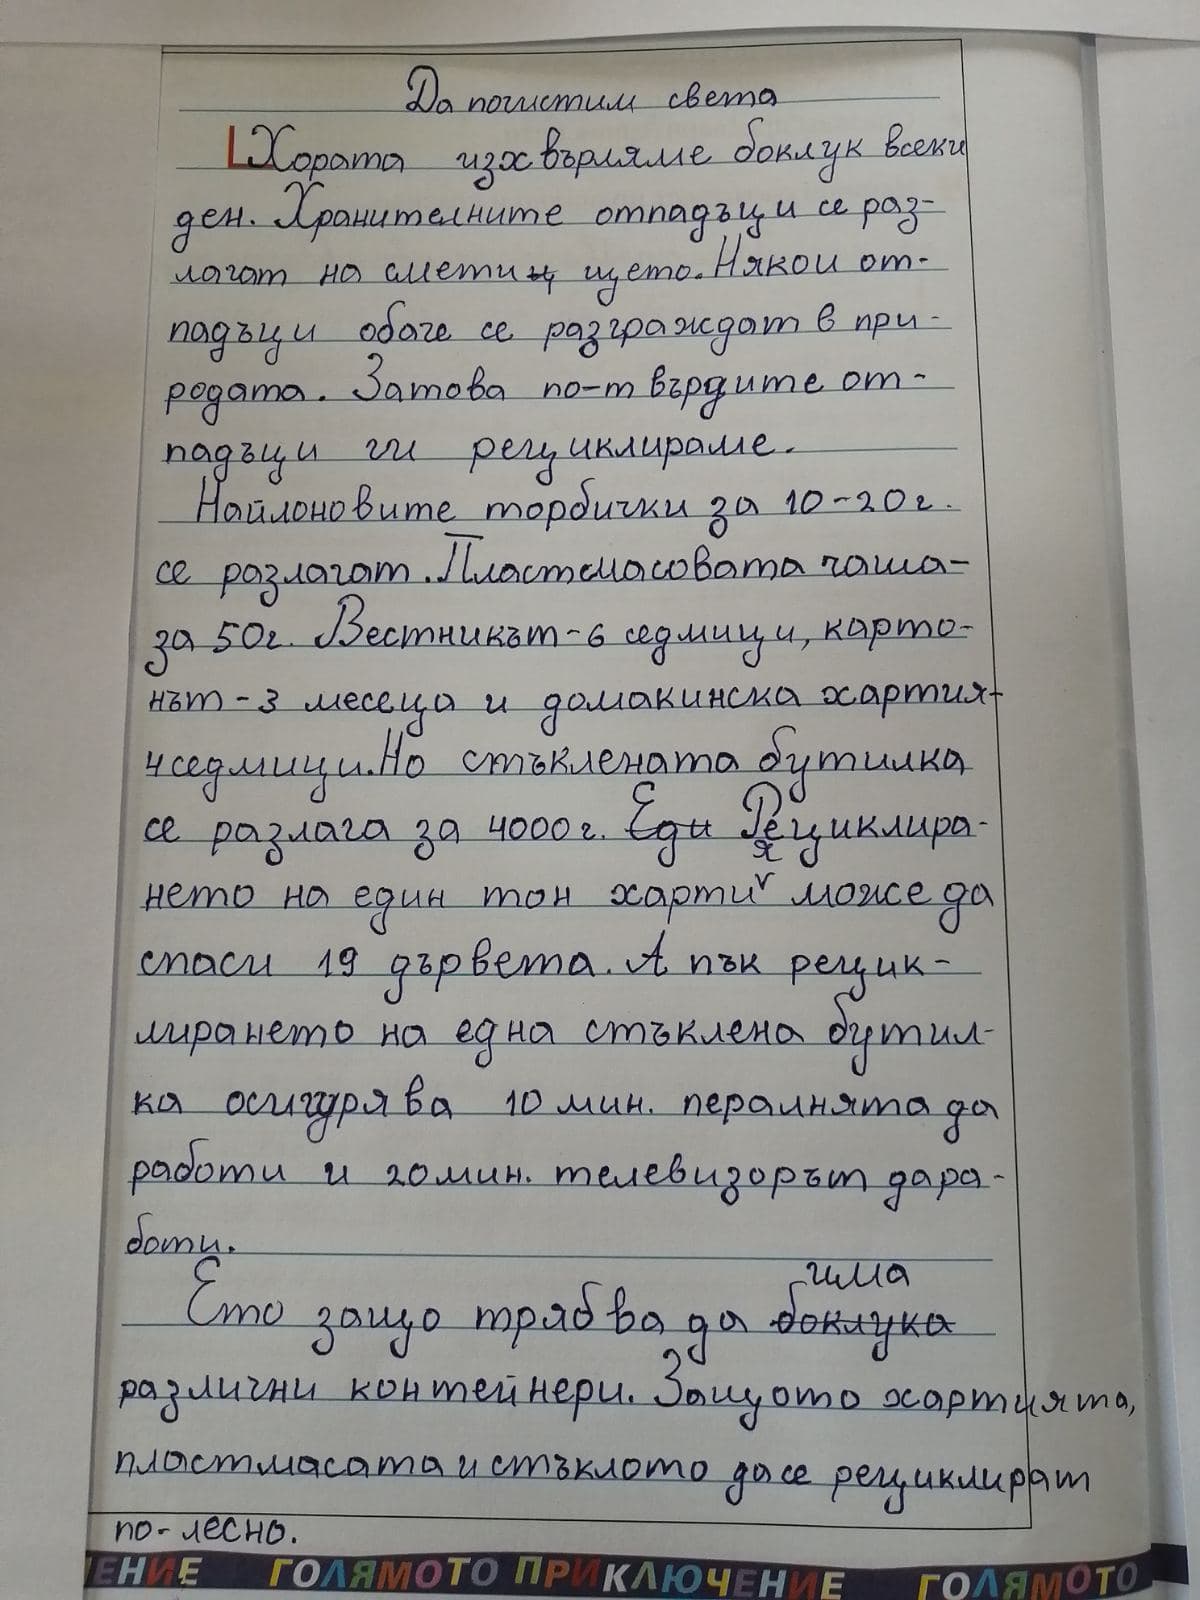 Да почистим света
Хората изхвърляме боклук всеки
ден. Хранителните отпадъци се раз-
лагат на сметищ щето. Някои от-
падъци обаче се разграждат в при-
родата. Затова по-твърдите от-
падъци ги рециклираме.
Найлоновите торбички за 10-20г.
се разлагат. Пластмасовата чаша-
за 50г. Вестникът-6 седмици, карто-
нът-3 месеца и домакинска хартия-
4 седмици. Но стъклената бутилка
се разлага за 4000г. Еди Рециклира-
нето на един тон хартия може да
спаси 19 дървета. А пък рецик-
лирането на една стъклена бутил-
ка осигурява 10 мин. пералнята да
работи и 20 мин. телевизорът да ра-
боти.
има
Ето защо трябва да боклука
различни контейнери. Защото хартията,
пластмасата и стъклото да се рециклират
по-лесно.
ЧЕНИЕ ГОЛЯМОТО ПРИКЛЮЧЕНИЕ ГОЛЯМОТО